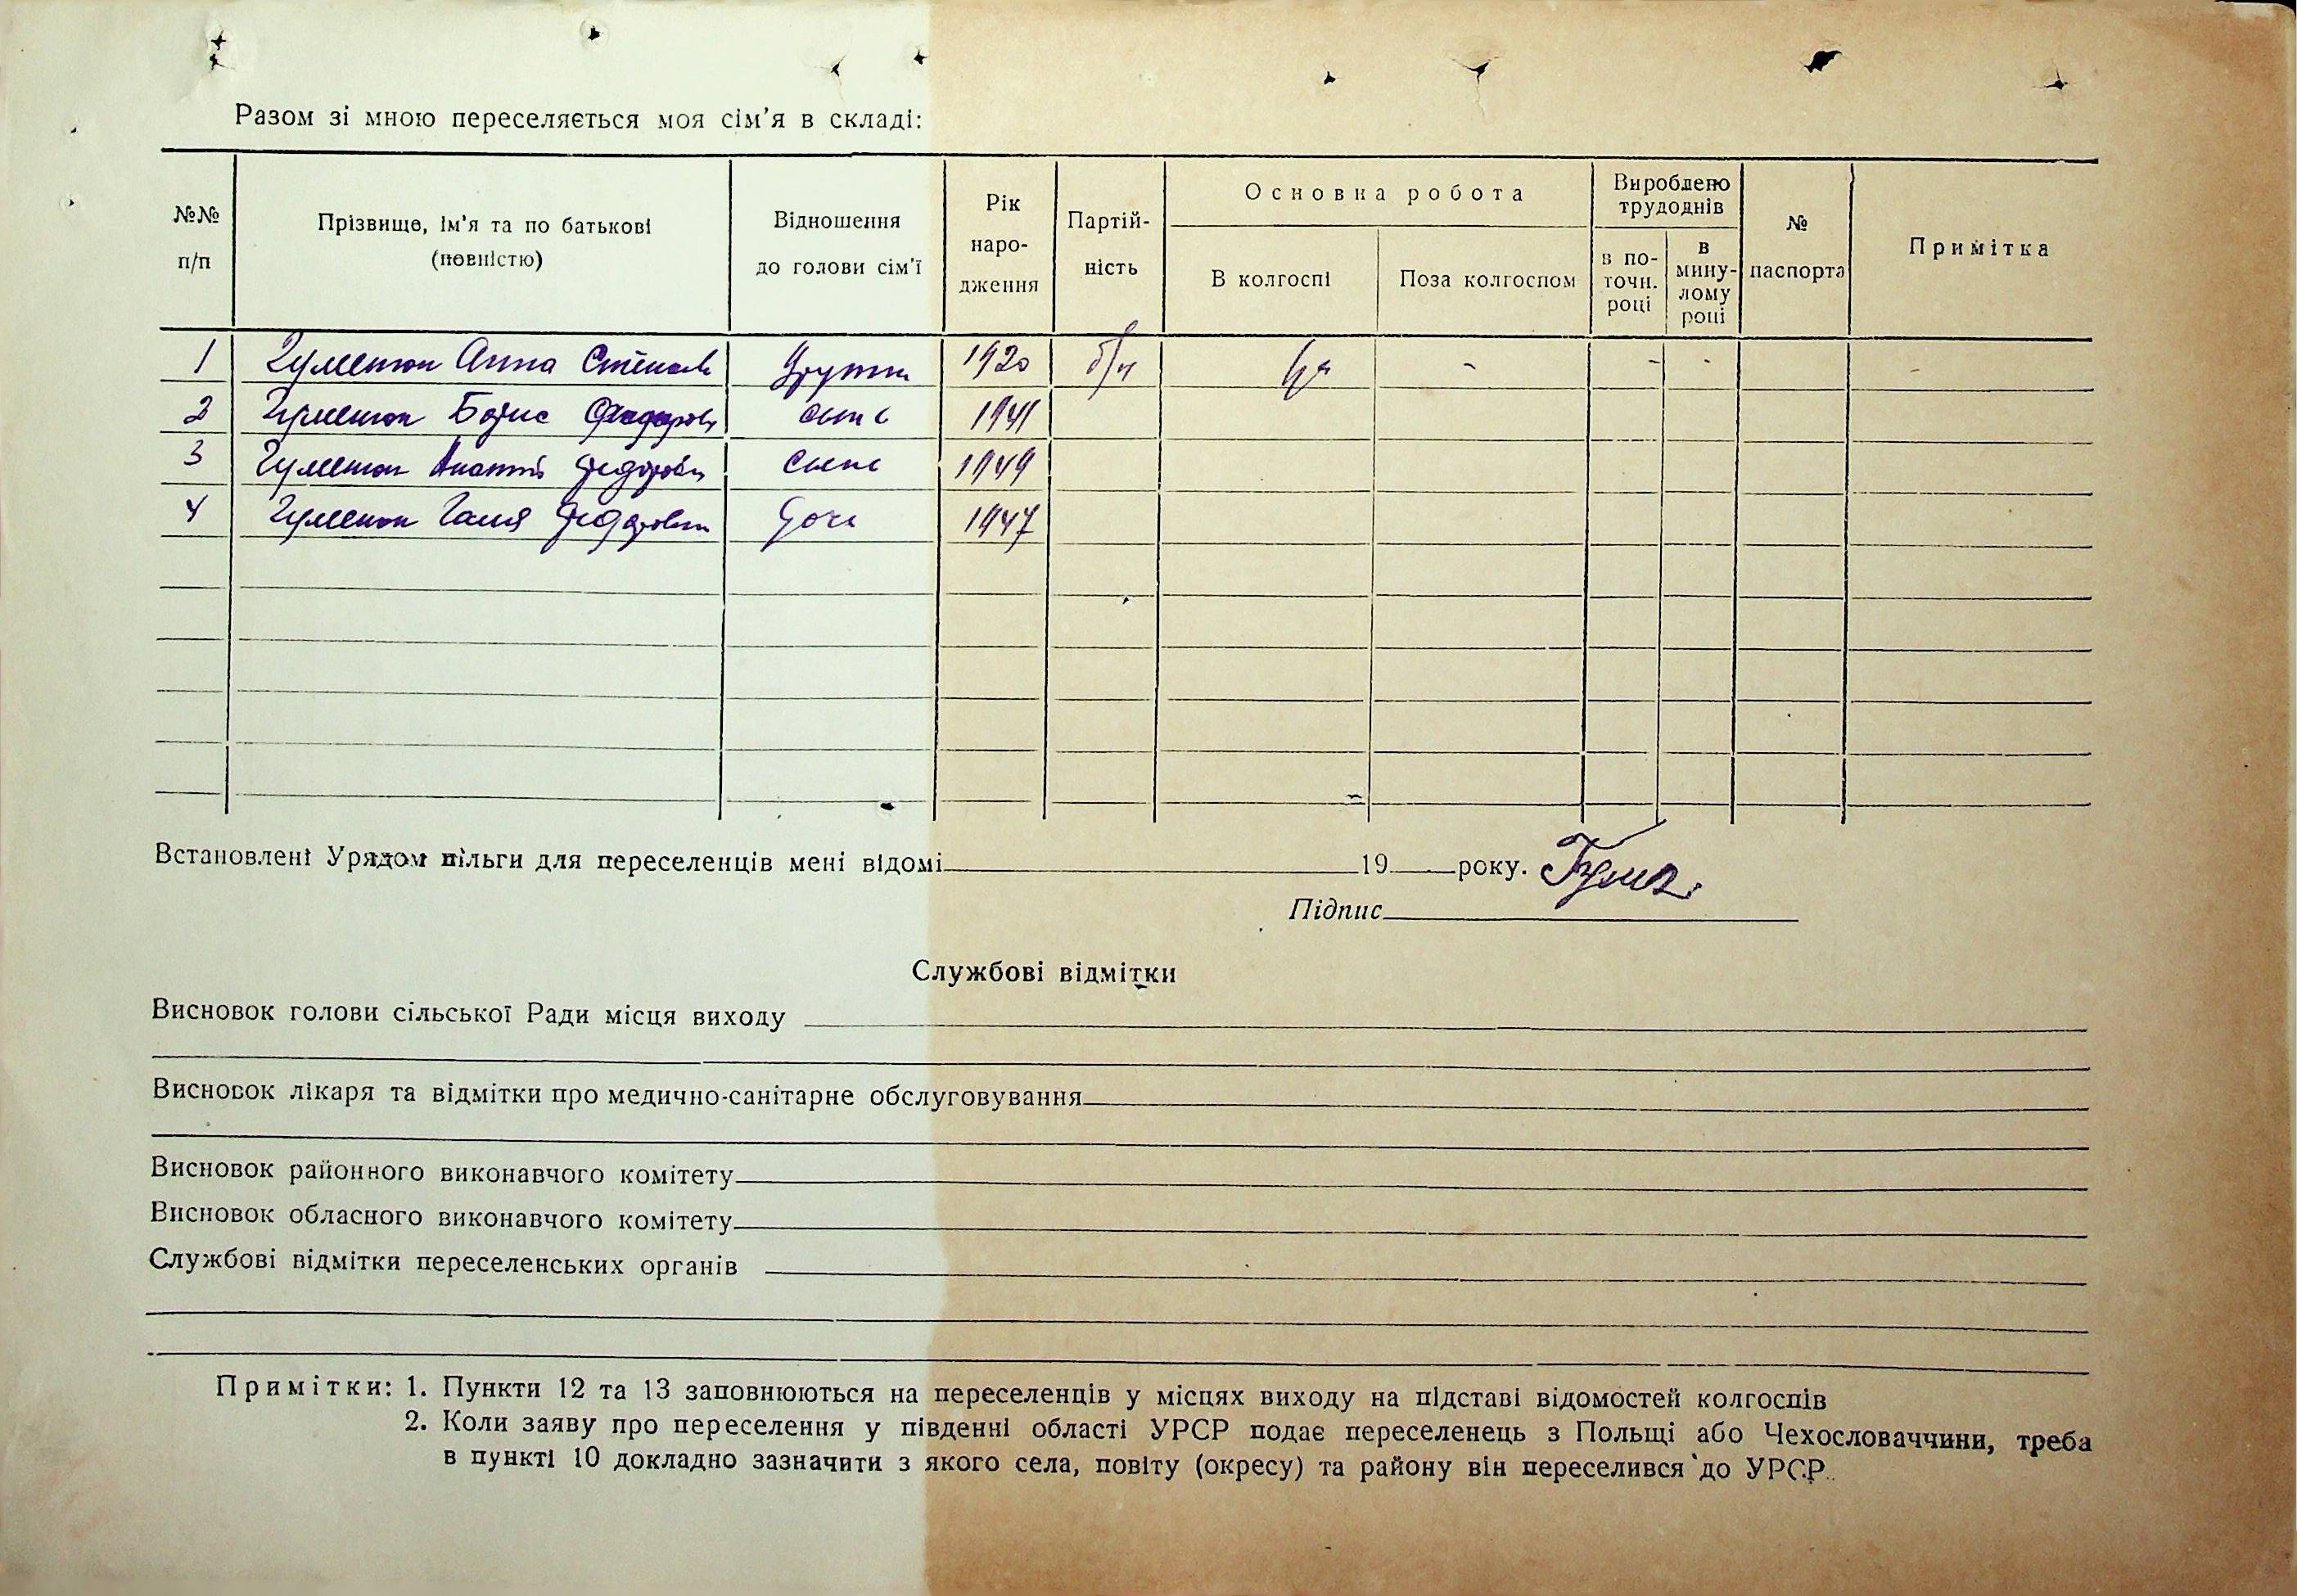 Разом зі мною переселяється моя сім'я в складі:
№№ п/п
Прізвище, ім'я та по батькові (повністю)
Відношення до голови сім'ї
Рік народження
Партій-ність
Основна робота
В колгоспі
Поза колгоспом
Вироблено трудоднів
в по-точн. році
в мину-лому році
№ паспорта
Примітка
1 Гуменюк Анна Степанів 1920 б/п - - - -
2 Гуменюк Борис 1941
3 Гуменюк 1949
4 Гуменюк Галя 1947
Встановлені Урядом пільги для переселенців мені відомі 19 року.
Підпис
Службові відмітки
Висновок голови сільської Ради місця виходу
Висновок лікаря та відмітки про медично-санітарне обслуговування
Висновок районного виконавчого комітету
Висновок обласного виконавчого комітету
Службові відмітки переселенських органів
Примітки: 1. Пункти 12 та 13 заповнюються на переселенців у місцях виходу на підставі відомостей колгоспів
2. Коли заяву про переселення у південні області УРСР подає переселенець з Польщі або Чехословаччини, треба
в пункті 10 докладно зазначити з якого села, повіту (окресу) та району він переселився до УРСР.